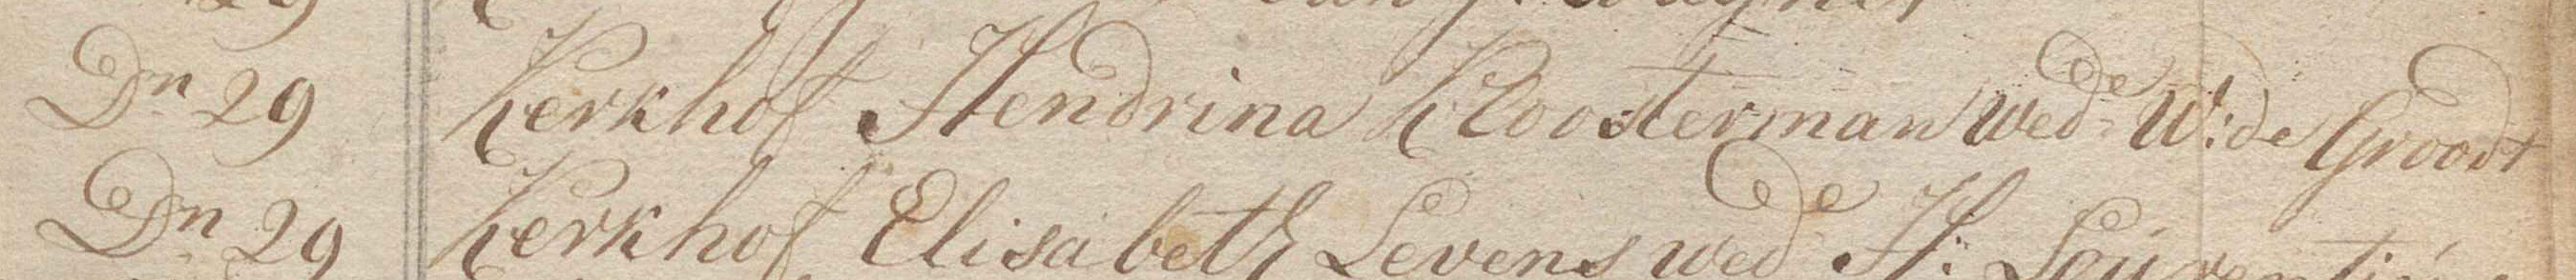 Dn 29 Kerkhof Hendrina Kloosterman wede W: de Groodt
Dn 29 Kerkhof Elisabeth Levens wede H: